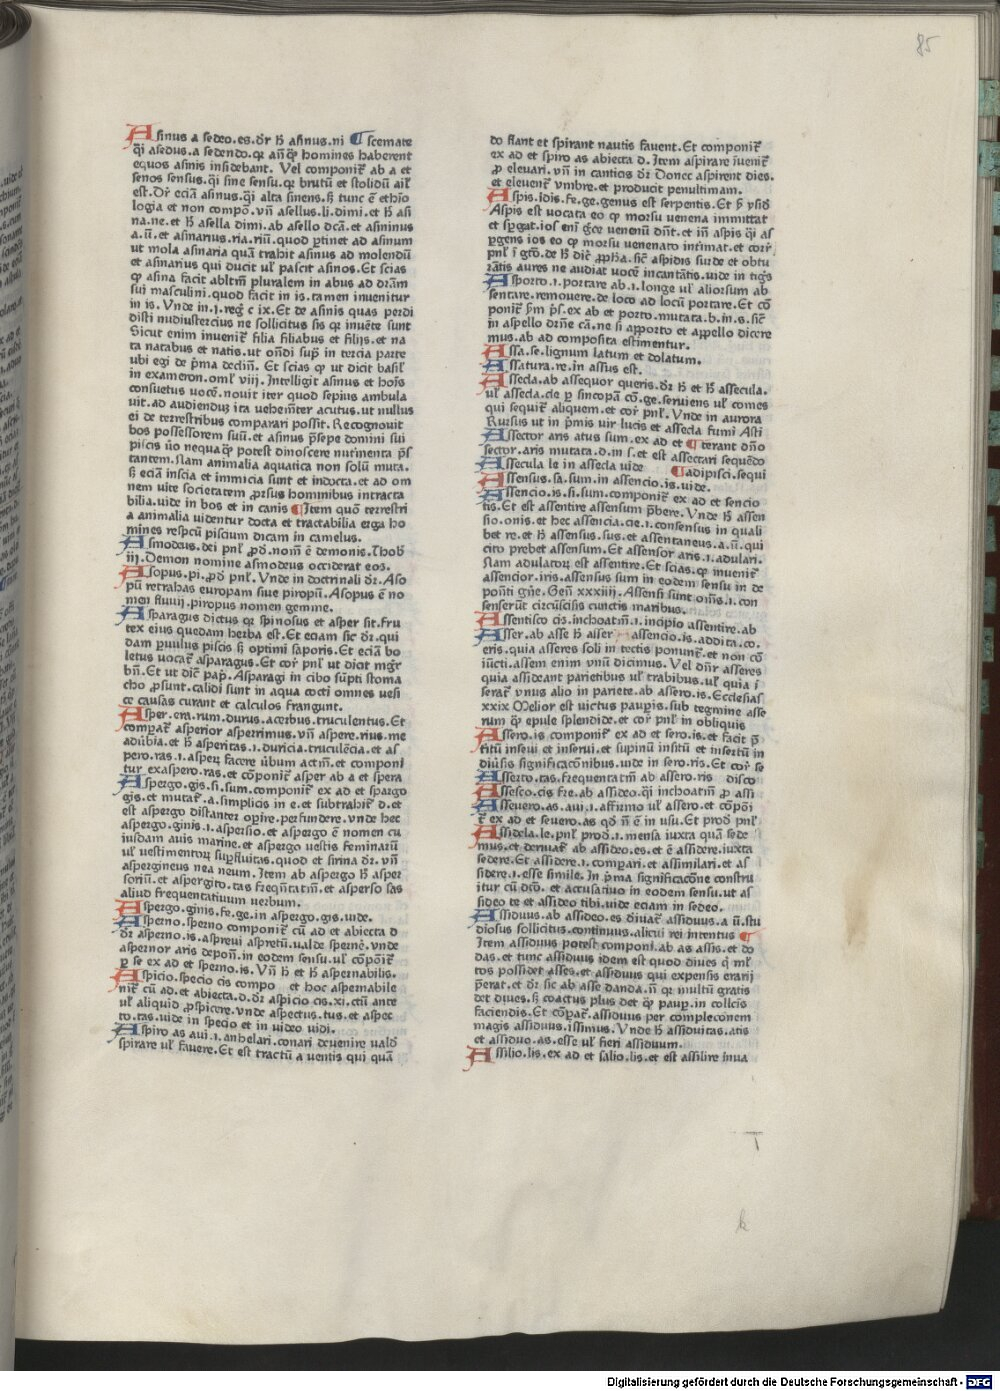 85
Asinus a sedeo.es.dr̄ h̄ asinus.ni ¶ scemate
qͥ asedus.a sedendo.qꝫ an̄qꝫ homines haberent
equos asinis insidebant. Vel componit̄ ab a et
senos sensus.qͥ sine sensu.qꝫ brutū et stolidū aīl
est. Dr̄ eciā asinus.qͥ alta sinens.s̄ tunc ē ethīo
logia et non compō.vn̄ asellus.li.dimi.et h̄ asi
na.ne.et h̄ asella dimi.ab asello dc̄ā.et asininus
a.ū.et asinarius.ria.riū.quod ꝑtinet ad asinum
ut mola asinaria quā trahit asinus ad molendū
et asinarius qui ducit ul̄ pascit asinos.Et scias
qꝫ asina facit abltm̄ pluralem in abus ad dr̄am
sui masculini.quod facit in is.tamen inuenitur
in is. Vnde in.j.regꝫ c ix.Et de asinis quas perdi
disti nudiustercius ne sollicitus sis qꝫ inuēte sunt
Sicut enim inuenit̄ filia filiabus et filijs.et na
ta natabus et natis.ut on̄di sup̄ in tercia parte
ubi egi de p̄ma declin̄. Et scias qꝫ ut dicit basil̄
in exameron.oml̄ viij. Intelligit asinus et hoīs
consuetus vocē.nouit iter quod sepius ambula
uit.ad audiendūꝫ ita uehemt̄er acutus.ut nullus
ei de terrestribus comparari possit. Recognouit
bos possessorem suū.et asinus p̄sepe domini sui
piscis ūo nequaqꝫ potest dinoscere nutrienta p̄s
tantem.Nam animalia aquatica non solū muta.
s̄ eciā inscia et immicia sunt et indocta.et ad om
nem uite societatem ꝓrsus hominibus intracta
bilia.uide in bos et in canis ¶ Item quō terrestri
a animalia uidentur docta et tractabilia erga ho
mines respectū piscium dicam in camelus.
Asmodeus.dei pnl̄ ꝓd̄.nom̄ ē demonis.Thob̄
iij. Demon nomine asmodeus occiderat eos.
Asopus.pi.ꝓd̄ pnl̄. Vnde in doctrinali dr̄. Aso
pū retrahas europam siue piropū. Asopus ē no
men fluuij.piropus nomen gemme.
Asparagus dictus qꝫ spinosus et asper sit.fru
tex eius quedam herba est.Et eciam sic dr̄.qui
dam ꝑuulus piscis s̄ optimi saporis.Et eciā bo
letus vocat̄ asparagus.Et cor̄ pnl̄ ut dicit mgr̄
bn̄.Et ut dic̄ pap̄. Asparagi in cibo sūpti stoma
cho ꝓsunt.calidi sunt in aqua cocti omnes uesi
ce causas curant et calculos frangunt.
Asper.era.rum.durus.acerbus.truculentus.Et
compat̄ asperior asperrimus.vn̄ aspere.rius.me
aduībia.et h̄ asperitas.i.duricia.truculēcia.et as
pero.ras.i.asperꝫ facere ūbum actm̄.et componi
tur exaspero.ras.et cōponit̄ asper ab a et spera
Aspergo.gis.si.sum.componit̄ ex ad et spargo
gis.et mutat̄.a.simplicis in e.et subtrahit̄ d.et
est aspergo distanter oꝑire.perfundere.vnde hec
aspergo.ginis.i.aspersio.et aspergo ē nomen cu
iusdam auis marine.et aspergo uestis feminarū
ul̄ uestimentoꝝ suꝑfluitas.quod et sirina dr̄. vn̄
aspergineus nea neum. Item ab aspergo h̄ asper
soriū.et aspergito.tas freqn̄tatm̄.et asperso sas
aliud frequentatiuum uerbum.
Aspergo.ginis.fe.ge.in aspergo.gis.uide.
Asperno.sperno componit̄ cū ad et abiecta d
dr̄ asperno.is.aspreui aspretū.ualde spernē.vnde
aspernor aris depon̄.in eodem sensu.ul̄ cōpōit̄
ꝑ se ex ad et sperno.is. Vn̄ h̄ et h̄ aspernabilis.
Aspicio.specio cis compo et hoc aspernabile
nit̄ cū ad.et abiecta.d.dr̄ aspicio cis.xi.ctū ante
ul̄ aliquid ꝓspicere.vnde aspectus.tus.et aspec
to.tas.uide in specio et in uideo uidi.
Aspiro as aui.i.anhelari.conari deuenire uald̄
spirare ul̄ fauere. Et est tractū a uentis qui quā
do flant et spirant nautis fauent.Et componit̄
ex ad et spiro as abiecta d.Item aspirare īuenit̄
ꝓ eleuari.vn̄ in canticis dr̄ Donec aspirent dies.
et eleuent̄ vmbre.et producit penultimam.
Aspis.idis.fe.ge.genus est serpentis.Et ꝑ ysid̄
Aspis est vocata eo qꝫ morsu uenena immittat
et sꝑgat.ios em̄ grece uenenū dn̄t.et in̄ aspis qͥ as
ꝑgens ios eo qꝫ morsu uenenato intimat.et corr̄
pnl̄ ī gtō.de h̄ dic̄ ꝓph̄a.sic̄ aspidis surde et obtu
rātis aures ne audiat vocē incantātis.uide in tigs̄
Asporto.i.portare ab.i.longe ul̄ aliorsum ab
sentare.remouere.de loco ad locū portare.Et cō
ponit̄ ꝑm p̄s.ex ab et porto.mutata.b.in.s.sic̄
in aspello dr̄ne cā.ne si apporto et appello dicere
mus.ab ad composita estimentur.
Assa.se.lignum latum et dolatum.
Assatura.re.in assus est.
Assecla.ab assequor queris.dr̄ h̄ et h̄ assecula.
ul̄ assecla.cle ꝑ sincopā cō.ge.seruiens ul̄ comes
qui sequit̄ aliquem.et cor̄ pnl̄. Vnde in aurora
Rursus ut in p̄mis uir lucis et assecla fumi Asti
Assector aris atus sum.ex ad et ¶ terant dn̄o
sector.aris mutata.d.in s.et est assectari sequēdo
Assecula le in assecla uide ¶ adipisci.sequi
Assensus.sa.sum.in assencio.is.uide.
Assencio.is.si.sum.componit̄ ex ad et sencio
tis.Et est assentire assensum p̄bere. Vnde h̄ assen
sio.onis.et hec assencia.cie.i.consensus in quali
bet re.et h̄ assensus.sus.et assentaneus.a.ū.qui
cito prebet assensum.Et assensor aris.i.adulari.
Nam adulatoꝝ est assentire.Et scias.qꝫ inuenit̄
assencior.iris.assensus sum in eodem sensu in de
pon̄ti gn̄e. Gen̄ xxxiiij. Assensi sunt om̄s.i.con
senserūt circūcisis cunctis maribus.
Assentisco cis.inchoatm̄.i.incipio assentire.ab
Asser.ab asse h̄ asser assencio.is.addita.co.
eris.quia asseres soli in tectis ponunt̄.et non cō
iūcti.assem enim vnū dicimus. Vel dn̄r asseres
quia assideant parietibus ul̄ trabibus.ul̄ quia ī
serat̄ vnus alio in pariete.ab assero.is. Ecclesias̄
xxix Melior est victus pauꝑis.sub tegmine asse
rum qꝫ epule splendide.et cor̄ pnl̄ in obliquis
Assero.is componit̄ ex ad et sero.is.et facit p̄
titū inseui et inserui.et supinū insitū et insertū in
diūsis significac̄onibus.uide in sero.ris.Et cor̄ se
Asserto.tas.frequentatm̄ ab assero.ris disco
Assesco.cis fre.ab assideo.qͥ inchoatm̄ ꝓ assi
Asseuero.as.aui.i.affirmo ul̄ assero.et cōpōi
t̄ ex ad et seuero.as qd̄ n̄ ē in usu.Et prod̄ pnl̄
Assidela.le.pnl̄ prod̄.i.mensa iuxta quā sede
mus.et deriuat̄ ab assideo.es.et ē assidere.iuxta
sedere.Et assidere.i.compari.et assimilari.et as
sidere.i.esse simile. In p̄ma significac̄one constru
itur cū dtō. et accusatiuo in eodem sensu.ut as
sideo te et assideo tibi.uide eciam in sedeo.
Assiduus.ab assideo.es diriuat̄ assiduus.a ū.stu
diosus sollicitus.continuus.alicui rei intentus ¶
Item assiduus potest componi.ab as assis.et do
das.et tunc assiduus idem est quod diues qͥ ml̄
tos possidet asses.et assiduus qui expensis erarij
p̄erat.et dr̄ sic ab asse danda.n̄ qꝫ multū gratis
det diues.s̄ coactus plus det qꝫ pauꝑ.in collc̄is
faciendis.Et cōpat̄.assiduus per complec̄onem
magis assiduus.issimus. Vnde h̄ assiduitas.atis
et assiduo.as.esse ul̄ fieri assiduum.
Assilio.lis.ex ad et salio.lis.et est assilire inua
k
Digitalisierung gefördert durch die Deutsche Forschungsgemeinschaft - DFG